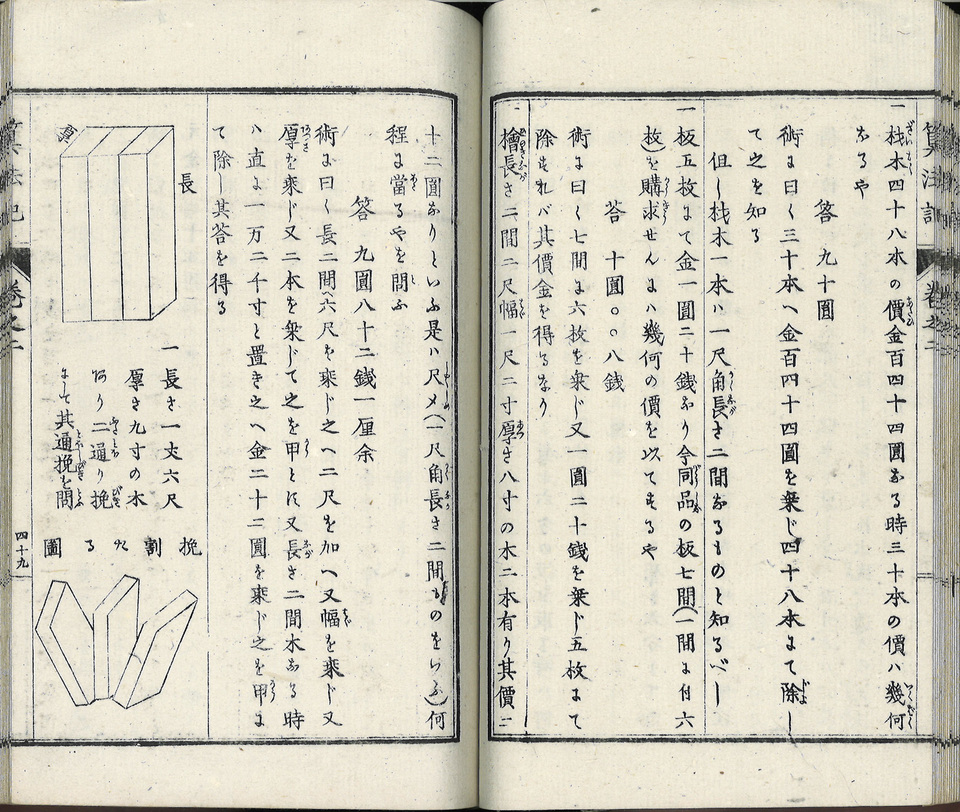 一 材木四十八本の價金百四十四圓なる時三十本の價ハ幾何
なるや
答 九十圓
術に曰く三十本へ金百四十四圓を乗じ四十八本にて除し
て之を知る
但し材木一本ハ一尺角長さ二間なるものと知るべし
一 板五枚にて金一圓二十錢なり今同品の板七間(一間に付六
枚)を購求せんにハ幾何の價を以てするや
答 十圓〇〇八錢
術に曰く七間に六枚を乗じ又一圓二十錢を乗じ五枚にて
除すれバ其價金を得るなり
檜長さ二間二尺幅一尺二寸厚さ八寸の木二本有り其價二
十二圓なりといふ是ハ尺〆(一尺角長さ二間ものをいふ)何
程に當るやを問ふ
答 九圓八十二錢一厘余
術に曰く長二間へ六尺を乗じ之へ二尺を加へ又幅を乗じ又
厚を乗じ又二本を乗じて之を甲とし又長さ二間木なる時
ハ直に一万二千寸と置き之へ金二十二圓を乗じ之を甲に
て除し其答を得る
長
厚
一 長さ一丈六尺
厚さ九寸の木
有り二通り挽
にして其通挽を問
挽
割
たる
圖
算法記
卷之二
四十九